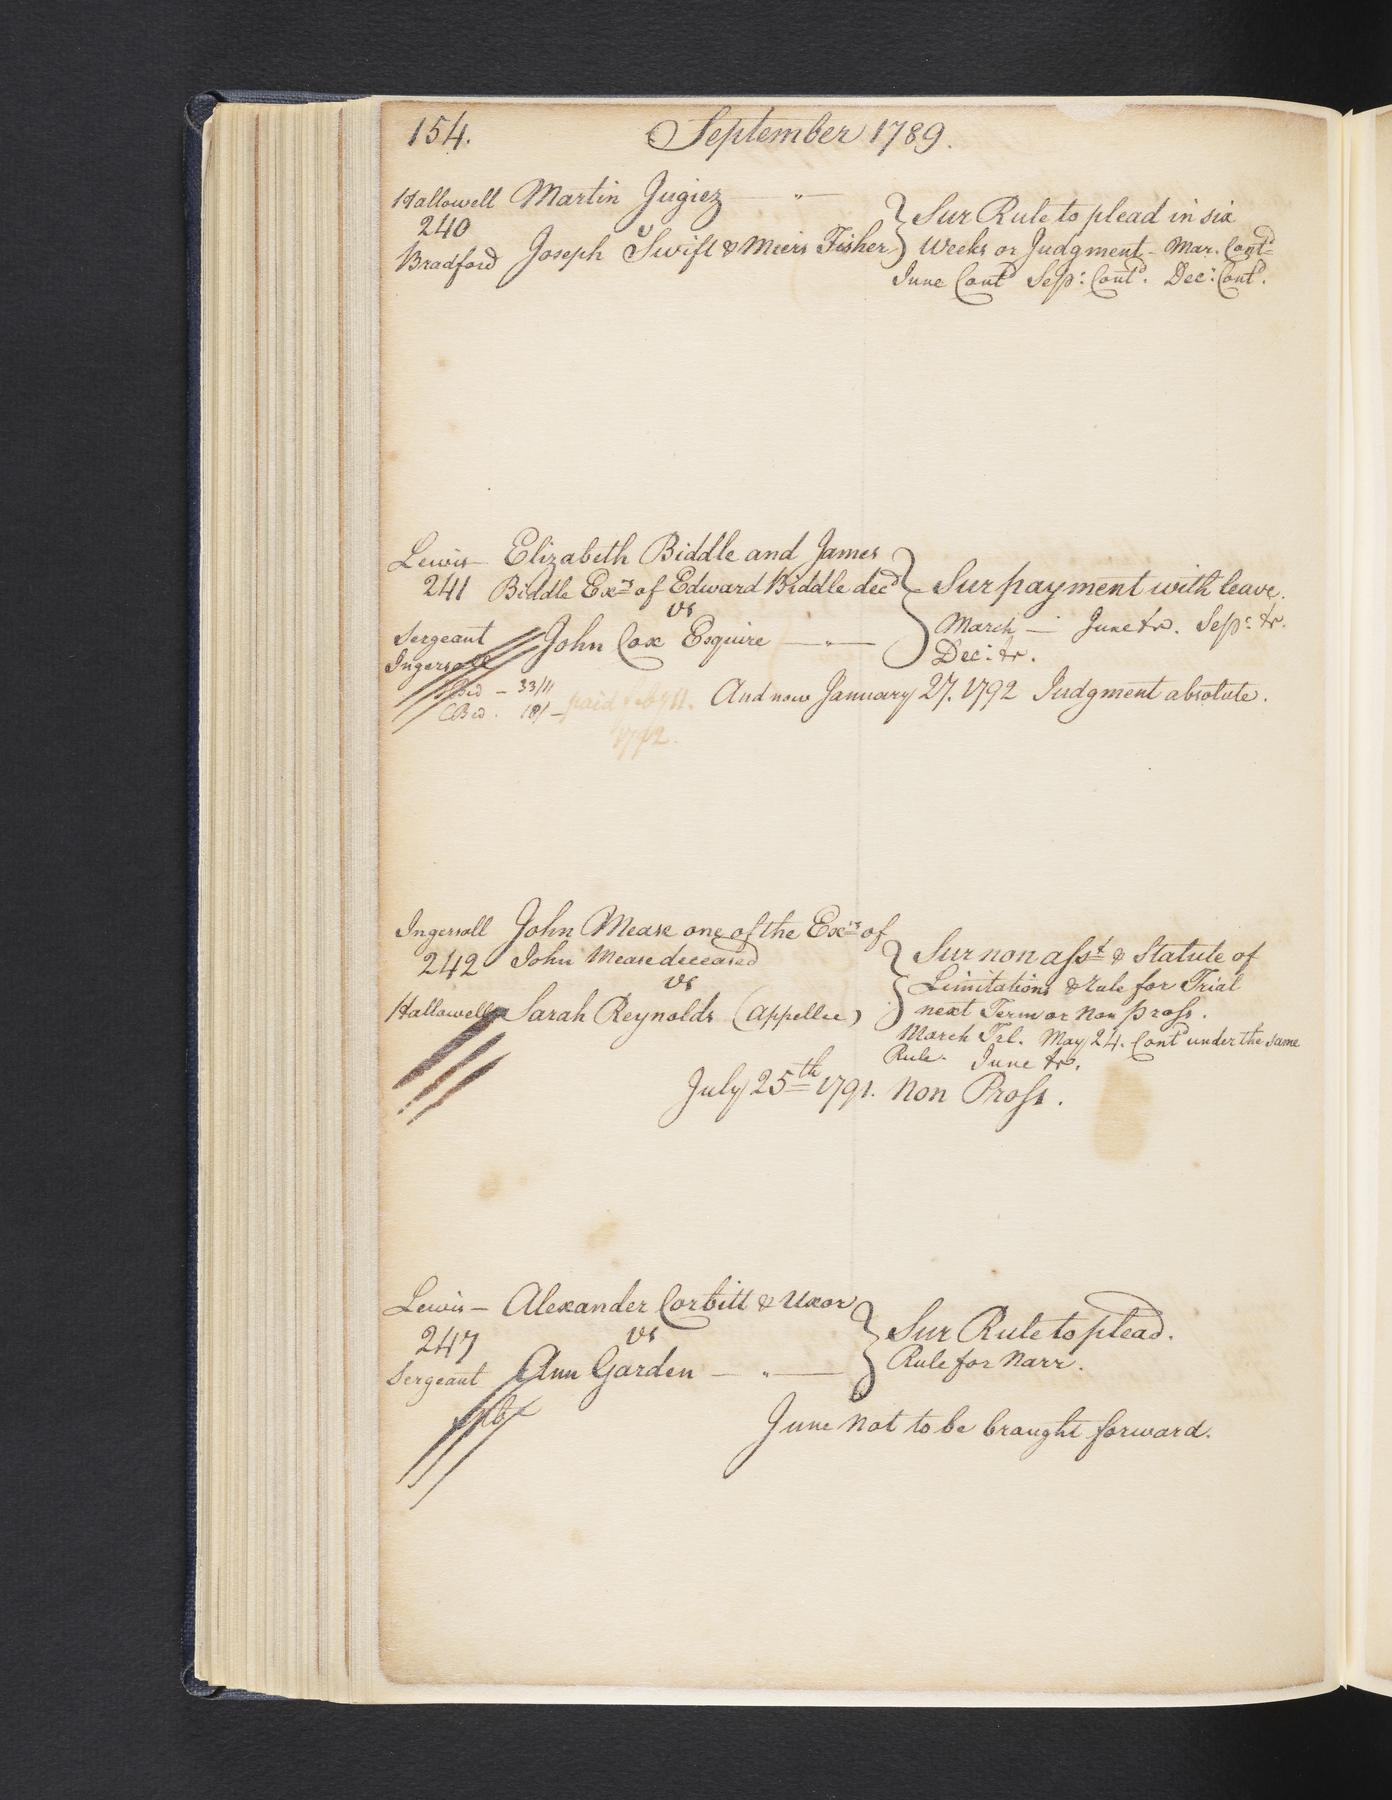 154. September 1789.
Hallowell Martin Jugiez — " —
240 v Sur Rule to plead in six
Bradford Joseph Swift & Miers Fisher Weeks or Judgment - Mar. Contd
June Contd Sepr: Contd. Decr: Contd.
Lewis — Elizabeth Biddle and James
241 Biddle Exrs of Edward Biddle decd Sur payment with leave.
vs
Sergeant John Cox Esquire — " — March — June &c. Sepr: &c.
Ingersoll Decr: &c.
— 33/11
18/ — paid feby 11. And now January 27. 1792 Judgment absolute.
1792.
Ingersoll John Mease one of the Exrs of
242 John Mease deceased Sur non asst & Statute of
vs Limitations & rule for Trial
Hallowell Sarah Reynolds (appellee) next Term or Non pross.
March Trl. May 24. Contd under the same
Rule. June &c.
July 25th 1791. Non Pross.
Lewis — Alexander Corbitt & Uxor
247 vs Sur Rule to plead.
Sergeant Ann Garden — " — Rule for Narr.
June not to be brought forward.